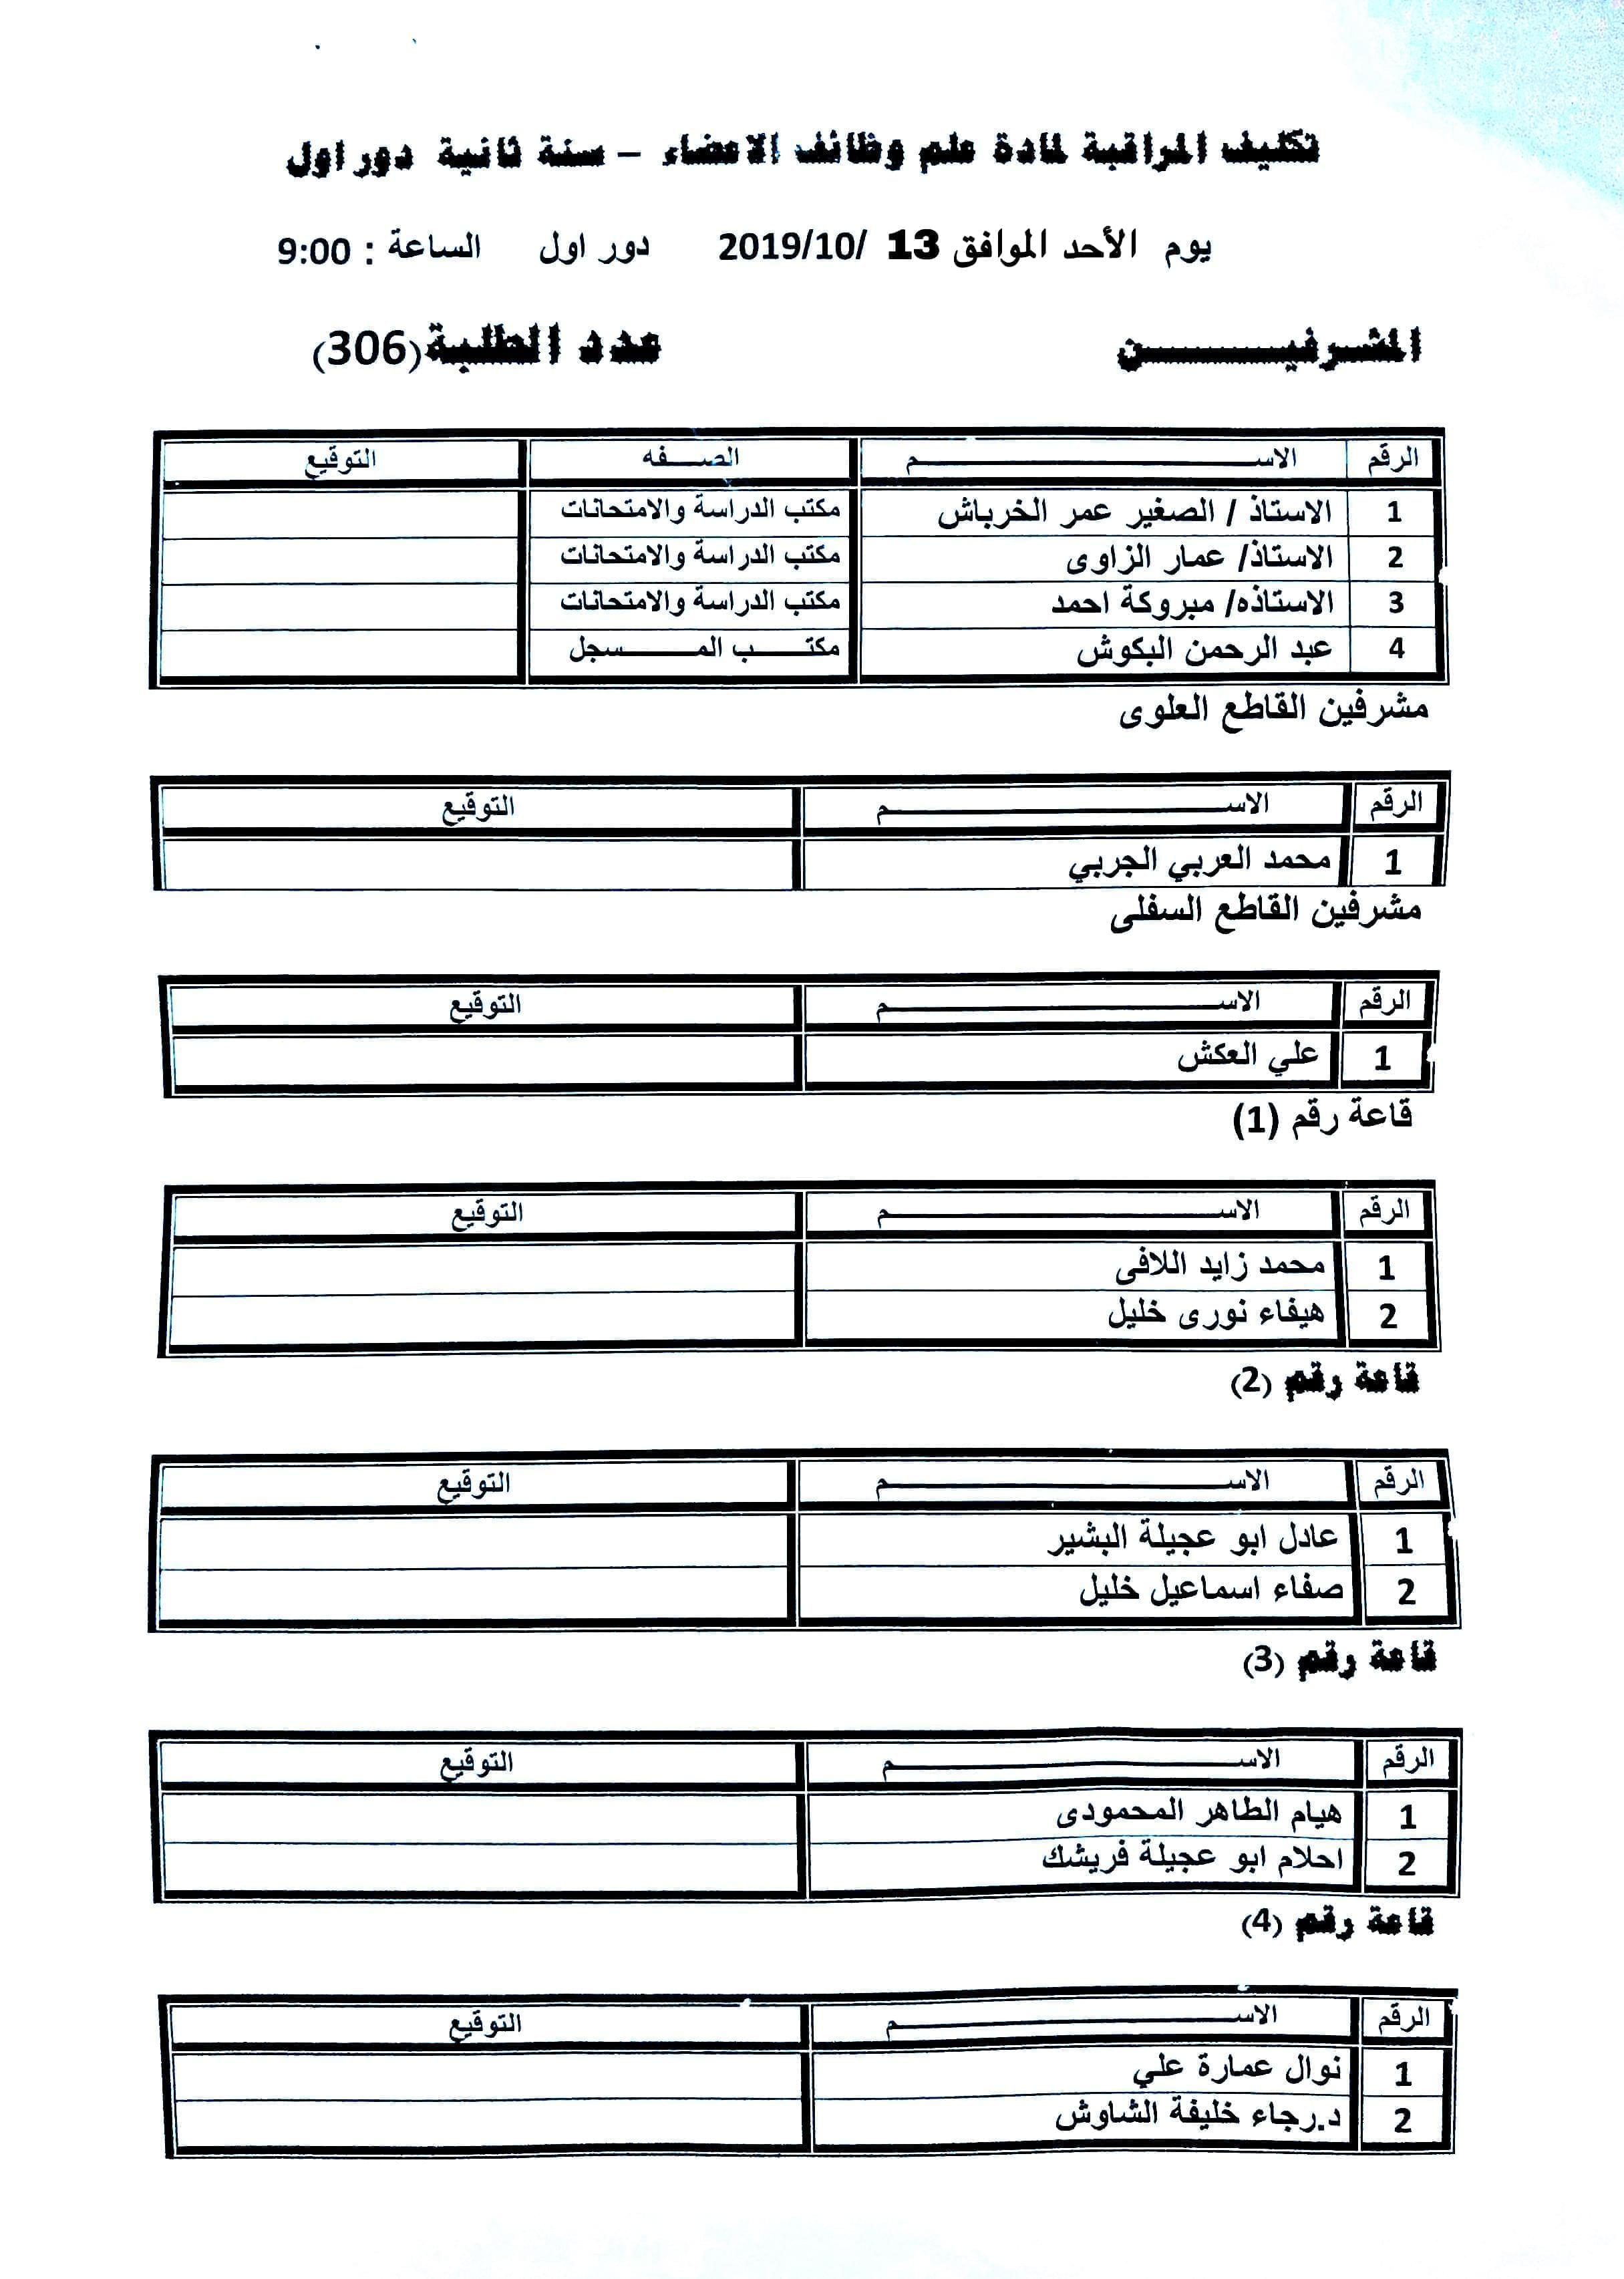 تكليف المراقبة لمادة علم وظائف الاعضاء – سنة ثانية دور اول
يوم الأحد الموافق 13 /2019/10 دور اول الساعة : 9:00
المشرفيـــــــن عدد الطلبة (306)
الرقم الاســـــــم الصـــفه التوقيع
1 الاستاذ / الصغير عمر الخرباش مكتب الدراسة والامتحانات
2 الاستاذ/ عمار الزاوى مكتب الدراسة والامتحانات
3 الاستاذه/ مبروكة احمد مكتب الدراسة والامتحانات
4 عبد الرحمن البكوش مكتـــب المـــــسجل
مشرفين القاطع العلوى
الرقم الاســـــــم التوقيع
1 محمد العربي الجربي
مشرفين القاطع السفلى
الرقم الاســـــــم التوقيع
1 علي العكش
قاعة رقم (1)
الرقم الاســـــــم التوقيع
1 محمد زايد اللافى
2 هيفاء نورى خليل
قاعة رقم (2)
الرقم الاســـــــم التوقيع
1 عادل ابو عجيلة البشير
2 صفاء اسماعيل خليل
قاعة رقم (3)
الرقم الاســـــــم التوقيع
1 هيام الطاهر المحمودى
2 احلام ابو عجيلة فريشك
قاعة رقم (4)
الرقم الاســـــــم التوقيع
1 نوال عمارة علي
2 د.رجاء خليفة الشاوش